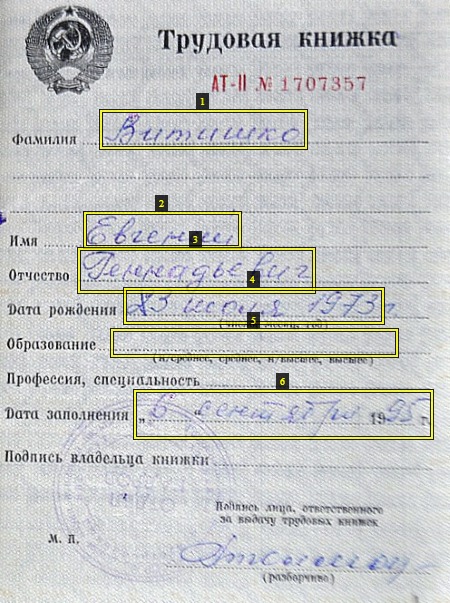 Трудовая книжка
АТ-II № 1707357
1
Фамилия Витишко
2
Имя Евгений
3
Отчество Геннадьевич
4
Дата рождения 3 июля 1973 г.
5
(число, месяц, год)
Образование
(н/среднее, среднее, н/высшее, высшее)
Профессия, специальность
6
Дата заполнения „6" сентября 1995 г.
Подпись владельца книжки
Подпись лица, ответственного
за выдачу трудовых книжек
М. П.
(разборчиво)